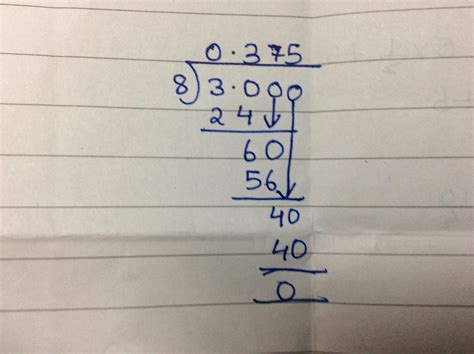 0.375
8)3.000
24
60
56
40
40
0